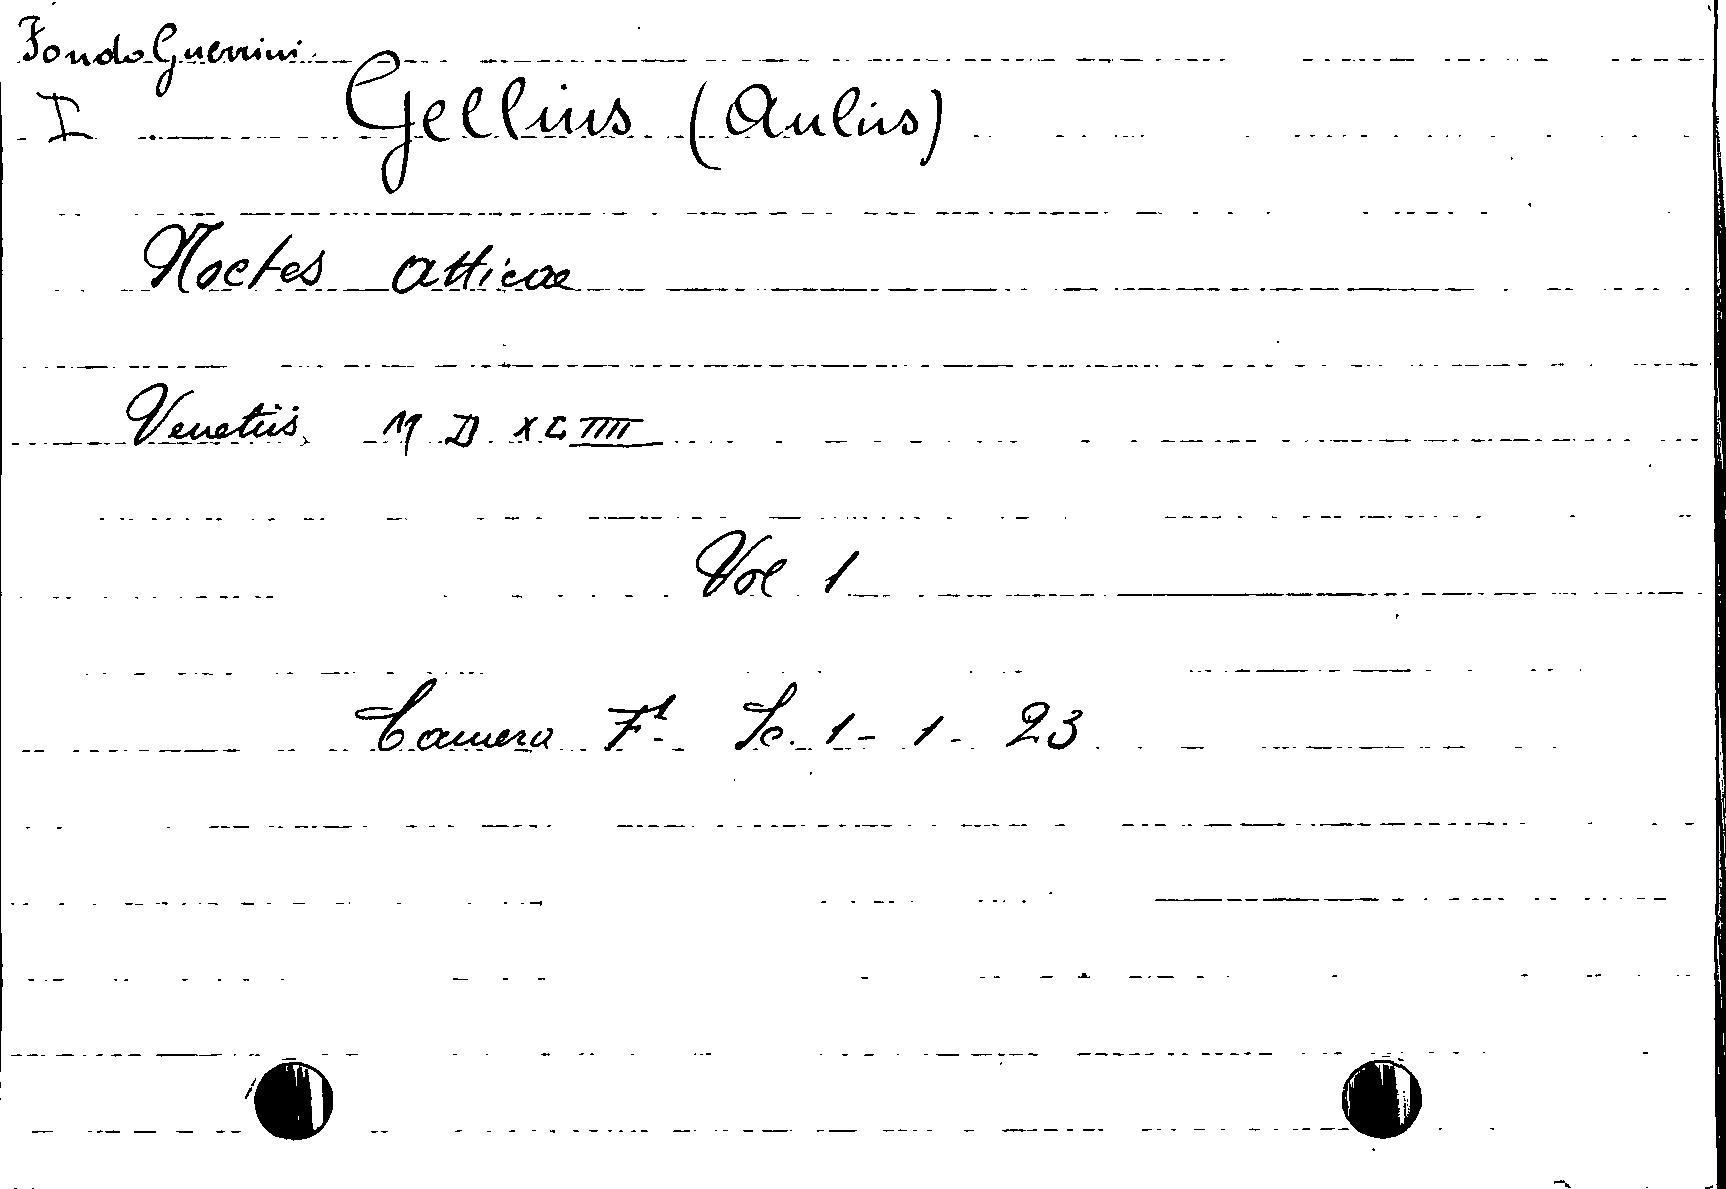 Fondo Guerrini
I Gellius (Aulus)
Noctes atticae
Venetiis, M D XLIIII
Vol 1
Camera F¹. Sc. 1 - 1 - 23